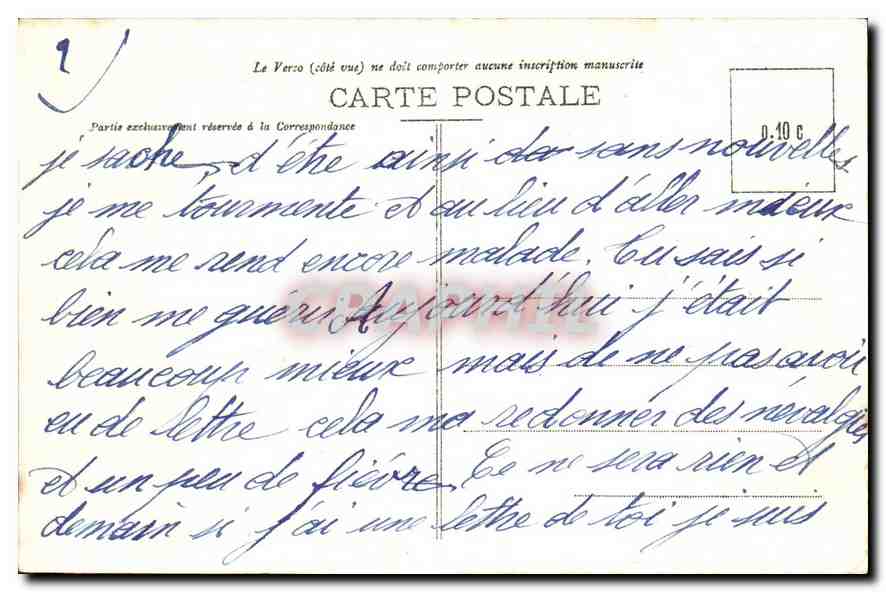 2)
Le Verso (côté vue) ne doit comporter aucune inscription manuscrite
CARTE POSTALE
Partie exclusivement réservée à la Correspondance
0.10 c
je sache, d'être ainsi sans nouvelles
je me tourmente et au lieu d'aller mieux
cela me rend encore malade. Tu sais si
bien me guérir Aujourd'hui j'était
beaucoup mieux mais de ne pas avoir
eu de lettre cela ma redonner des névalgies
et un peu de fièvre. Ce ne sera rien et
demain si j'ai une lettre de toi je suis
CPAPHIL